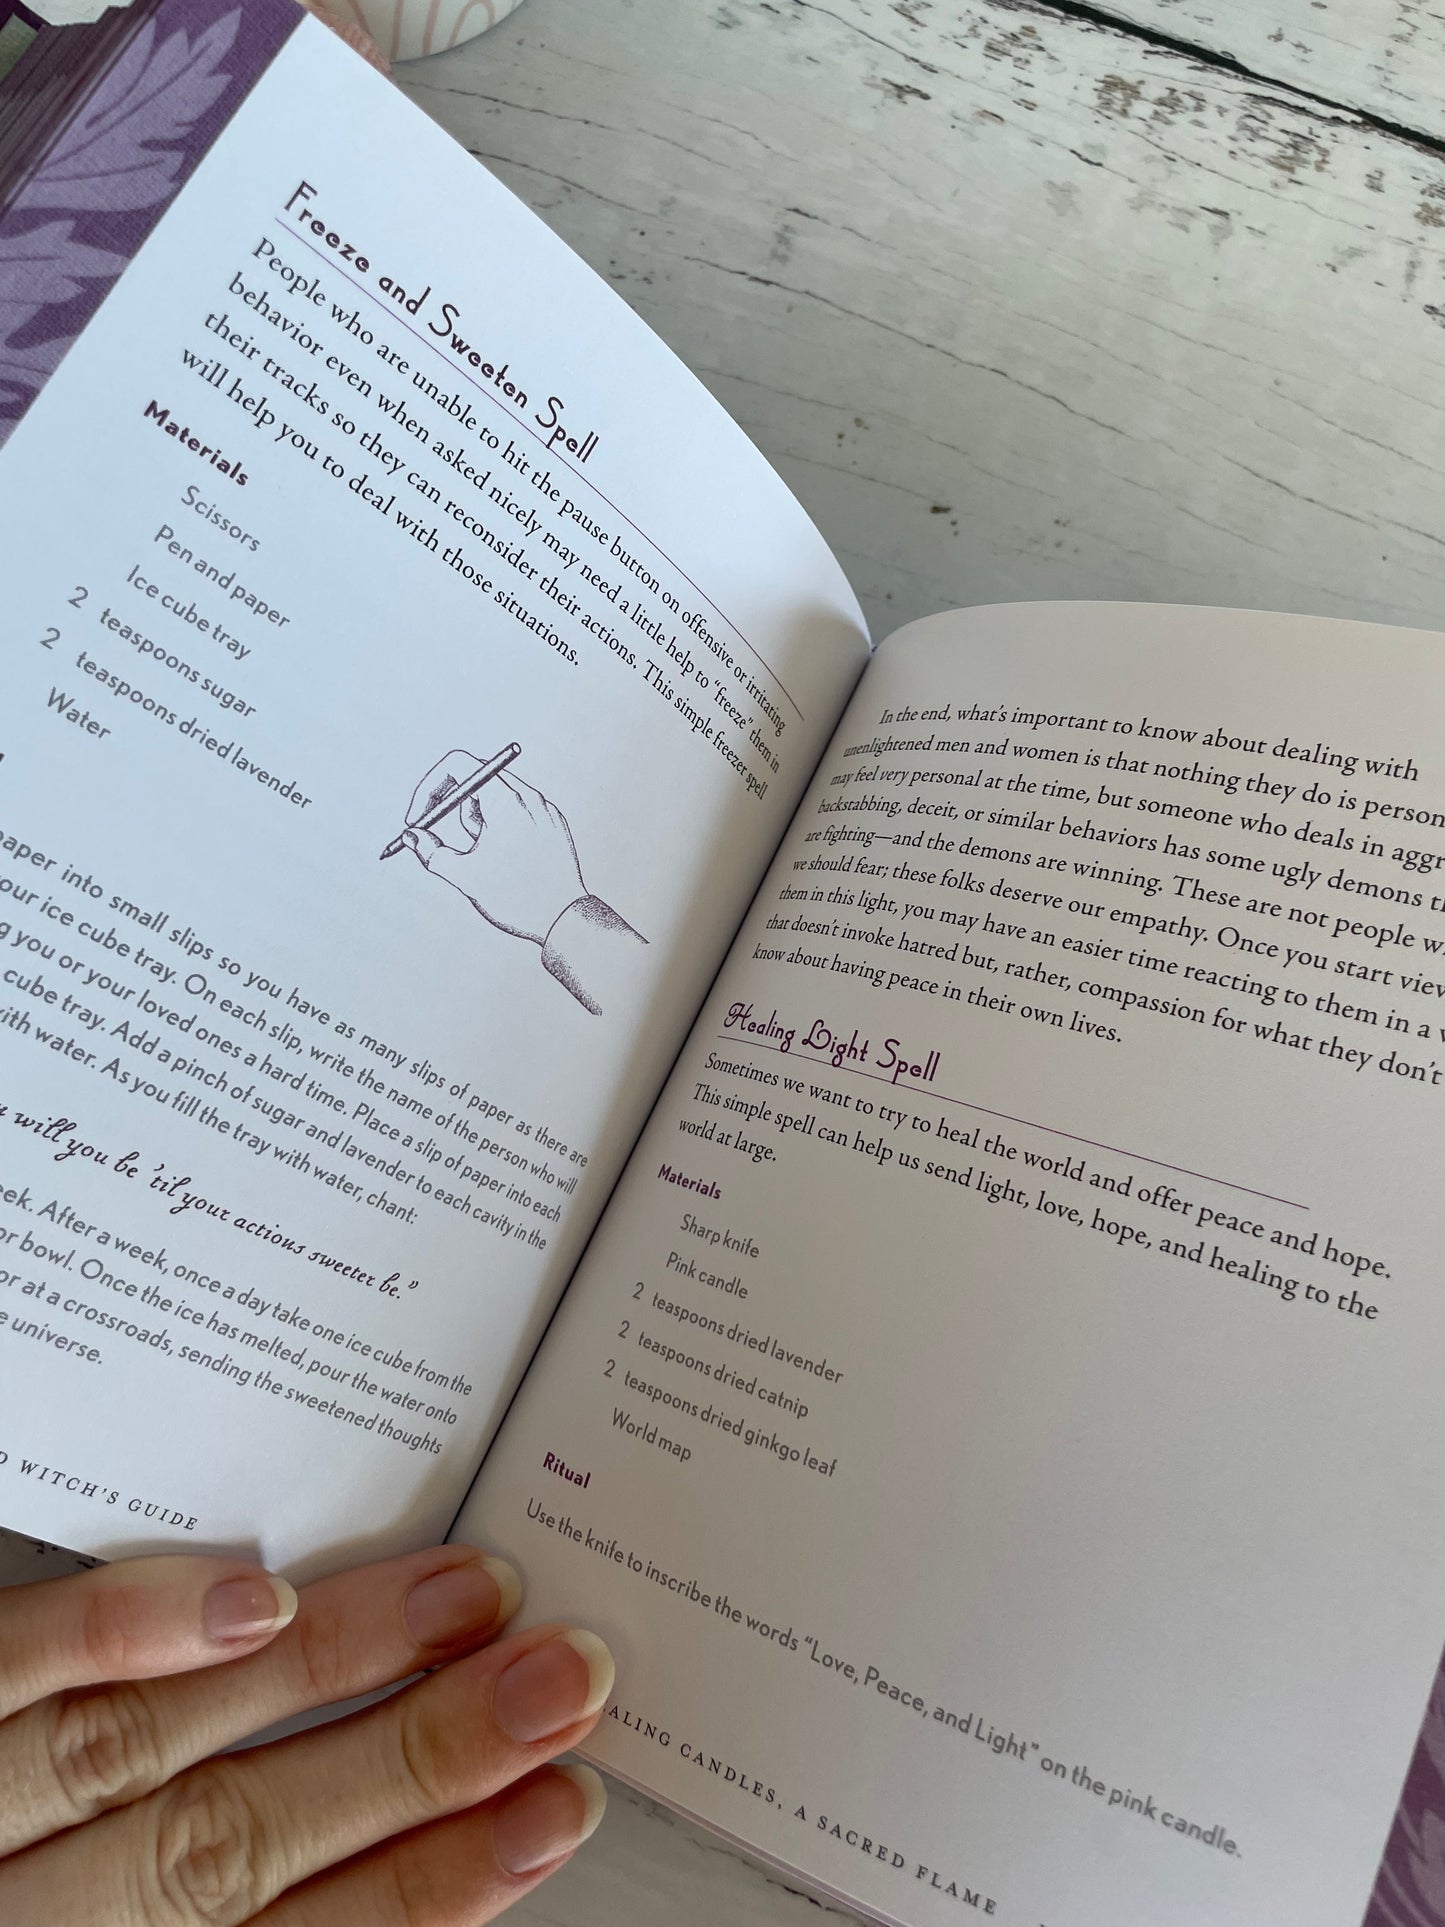 Freeze and Sweeten Spell
People who are unable to hit the pause button on offensive or irritating
behavior even when asked nicely may need a little help to “freeze” them in
their tracks so they can reconsider their actions. This simple freezer spell
will help you to deal with those situations.
Materials
Scissors
Pen and paper
Ice cube tray
2 teaspoons sugar
2 teaspoons dried lavender
Water
paper into small slips so you have as many slips of paper as there are
your ice cube tray. On each slip, write the name of the person who will
you or your loved ones a hard time. Place a slip of paper into each
cube tray. Add a pinch of sugar and lavender to each cavity in the
with water. As you fill the tray with water, chant:
will you be ’til your actions sweeter be.”
eek. After a week, once a day take one ice cube from the
or bowl. Once the ice has melted, pour the water onto
or at a crossroads, sending the sweetened thoughts
universe.
WITCH’S GUIDE
In the end, what’s important to know about dealing with
unenlightened men and women is that nothing they do is person
may feel very personal at the time, but someone who deals in aggr
backstabbing, deceit, or similar behaviors has some ugly demons th
are fighting—and the demons are winning. These are not people w
we should fear; these folks deserve our empathy. Once you start view
them in this light, you may have an easier time reacting to them in a w
that doesn’t invoke hatred but, rather, compassion for what they don’t
know about having peace in their own lives.
Healing Light Spell
Sometimes we want to try to heal the world and offer peace and hope.
This simple spell can help us send light, love, hope, and healing to the
world at large.
Materials
Sharp knife
Pink candle
2 teaspoons dried lavender
2 teaspoons dried catnip
2 teaspoons dried ginkgo leaf
World map
Ritual
Use the knife to inscribe the words “Love, Peace, and Light” on the pink candle.
ALING CANDLES, A SACRED FLAME